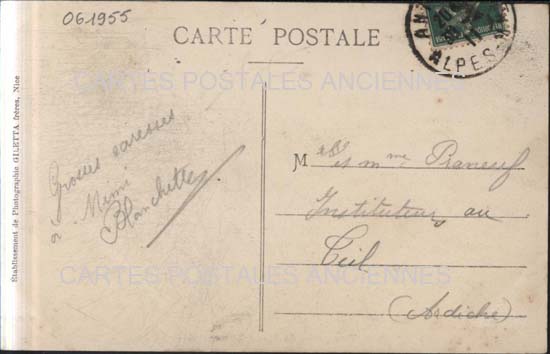 061955
CARTE POSTALE
CARTES POSTALES ANCIENNES
Etablissement de Photographie GILETTA frères, Nice
Grosses caresses
à Mimi
Blanchette
M
et mme
Instituteur au
Teil
(Ardèche)
CARTES POSTALES ANCIENNES
ALPES-M